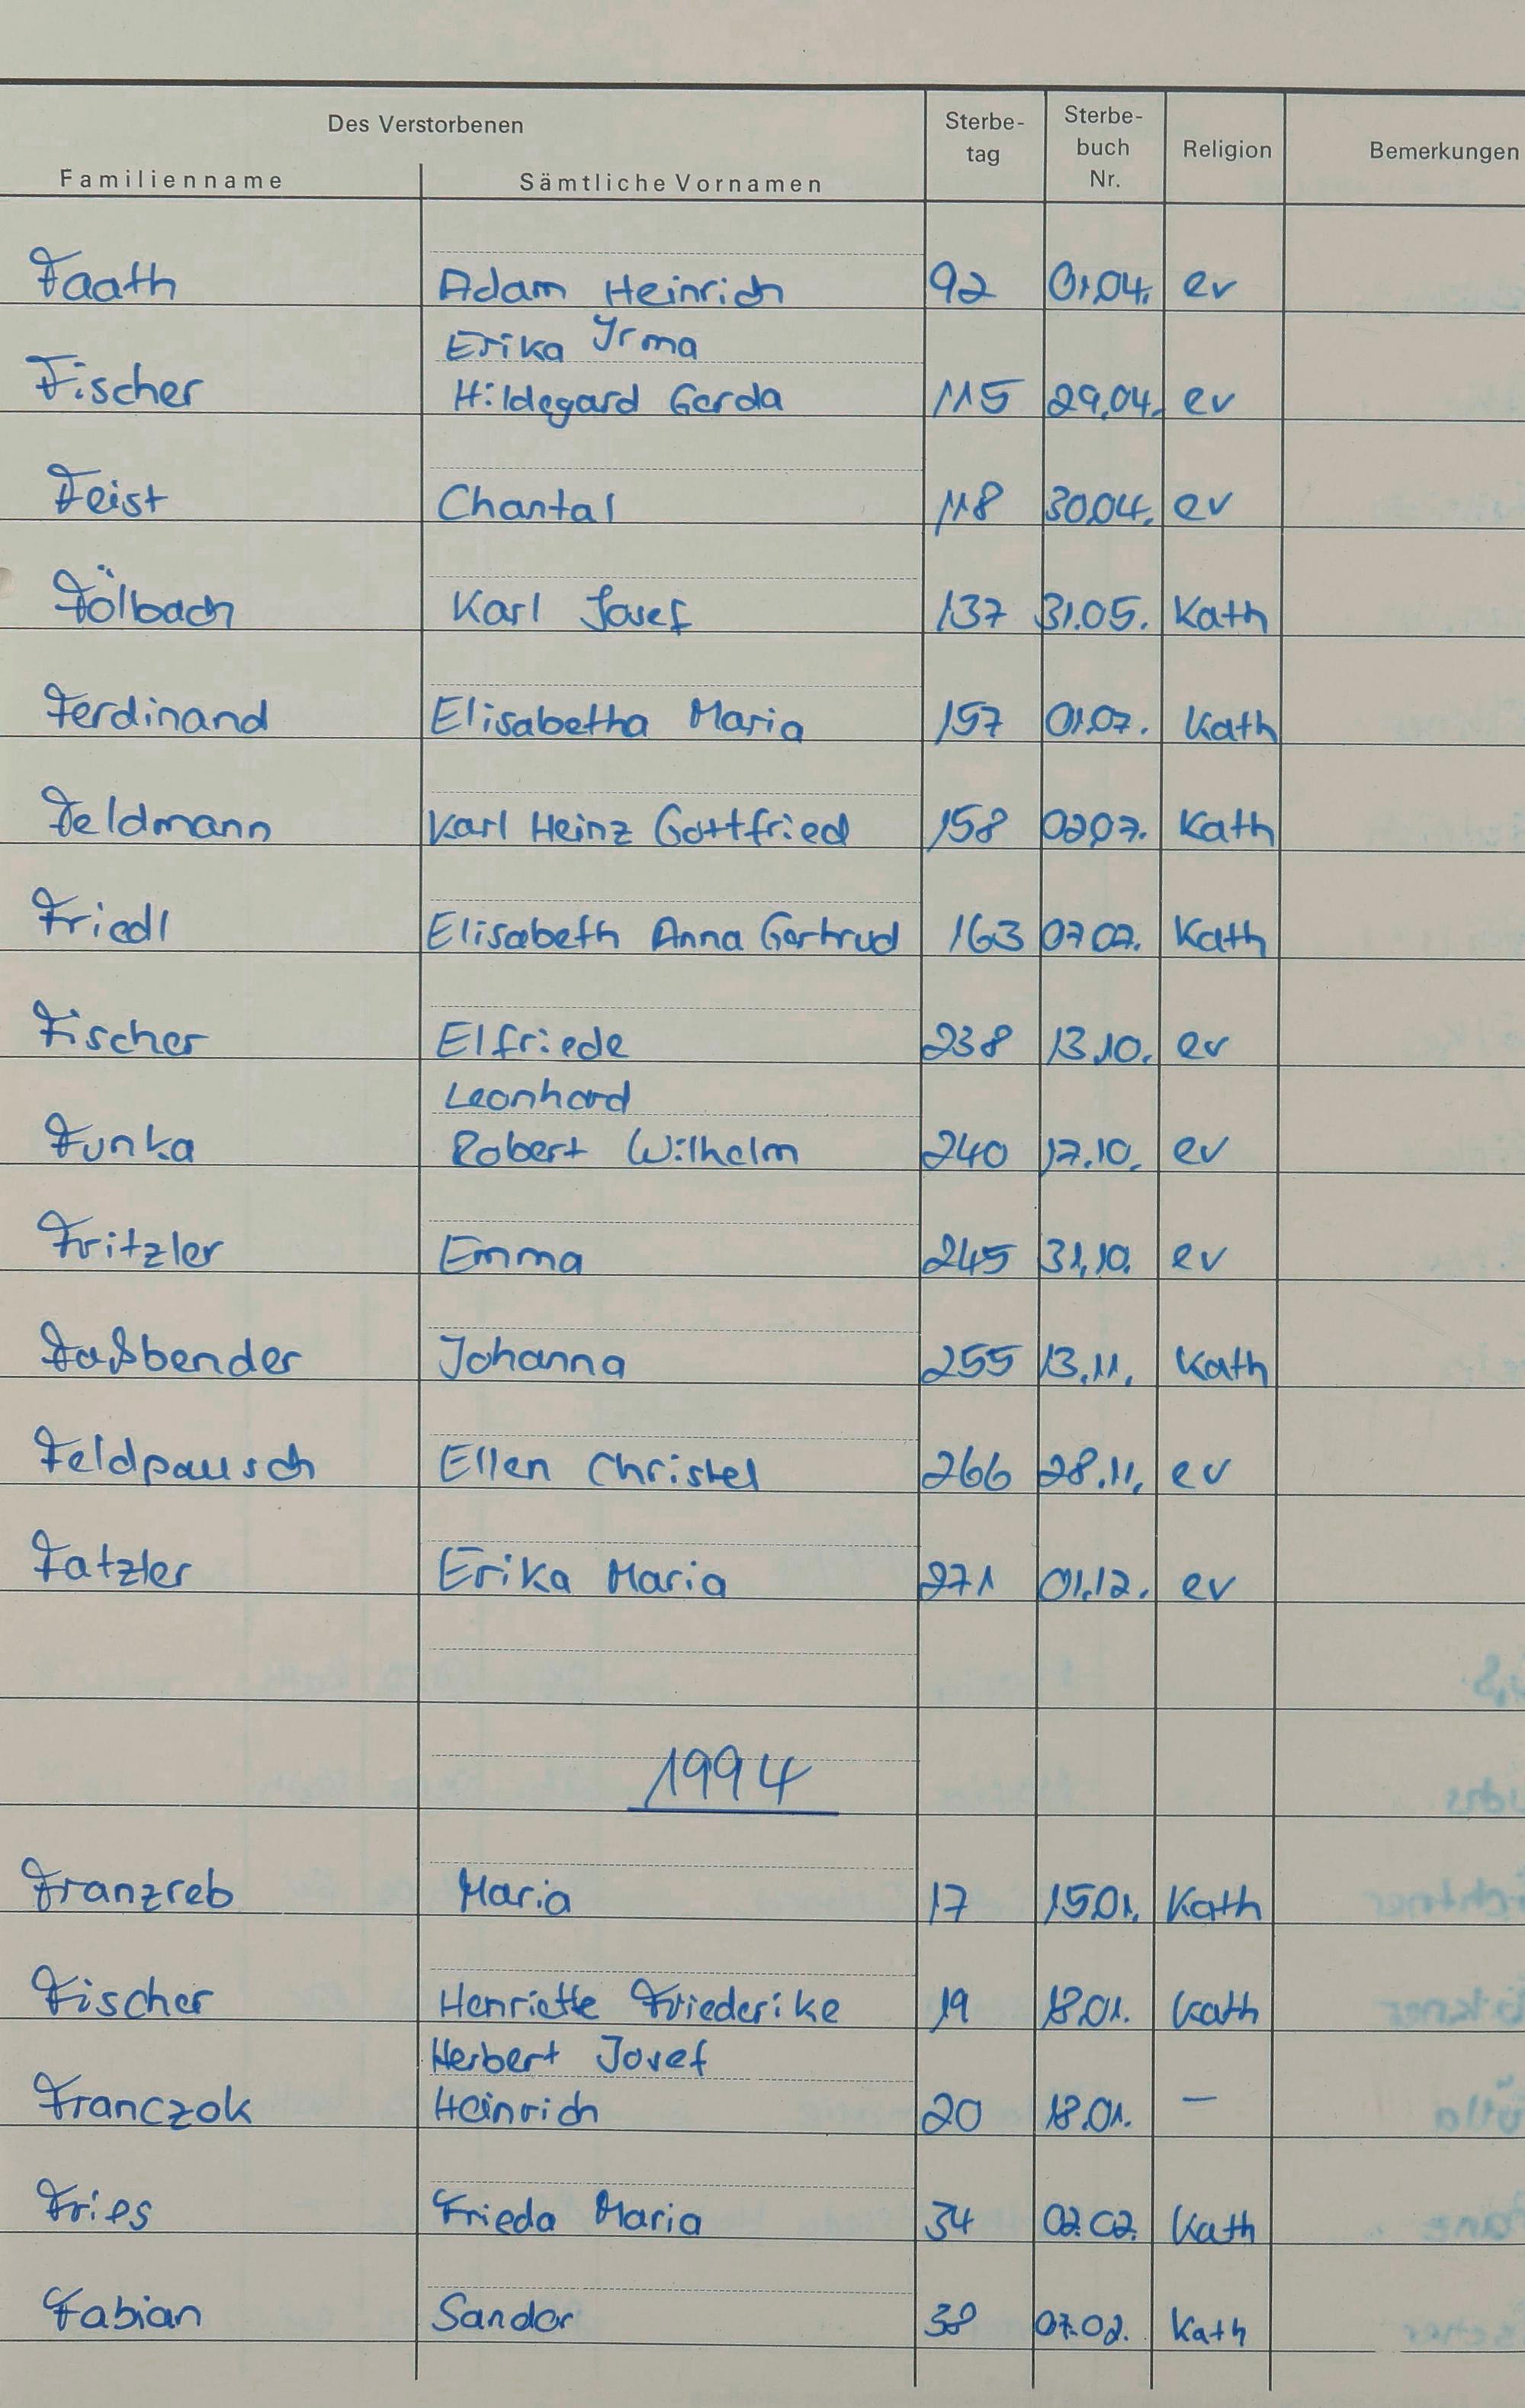 Des Verstorbenen
Familienname Sämtliche Vornamen Sterbe-tag Sterbe-buch Nr. Religion Bemerkungen
Faath Adam Heinrich 92 01.04. ev
Erika Irma
Fischer Hildegard Gerda 115 29.04. ev
Feist Chantal 118 30.04. ev
Fölbach Karl Josef 137 31.05. Kath
Ferdinand Elisabetha Maria 157 01.07. Kath
Feldmann Karl Heinz Gottfried 158 02.07. Kath
Friedl Elisabeth Anna Gertrud 163 07.07. Kath
Fischer Elfriede 238 13.10. ev
Leonhard
Funka Robert Wilhelm 240 17.10. ev
Fritzler Emma 245 31.10. ev
Faßbender Johanna 255 13.11. Kath
Feldpausch Ellen Christel 266 28.11. ev
Fatzler Erika Maria 271 01.12. ev
1994
Franzreb Maria 17 15.01. Kath
Fischer Henriette Friederike 19 18.01. Kath
Herbert Josef
Franczok Heinrich 20 18.01. —
Fries Frieda Maria 34 02.02. Kath
Fabian Sandor 38 07.02. Kath